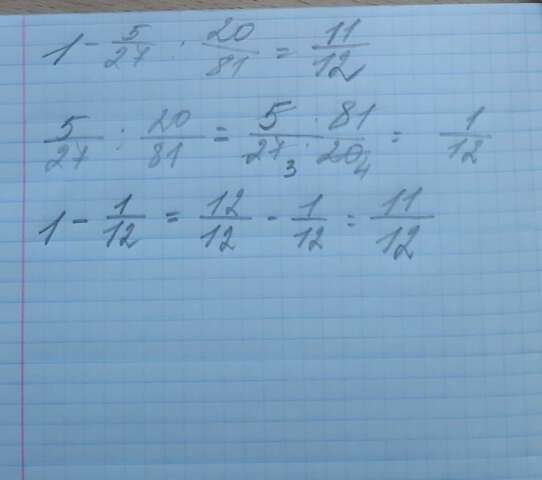 1 - 5/27 : 20/81 = 11/12
5/27 : 20/81 = 5 · 81/27 3 · 20 4 = 1/12
1 - 1/12 = 12/12 - 1/12 = 11/12